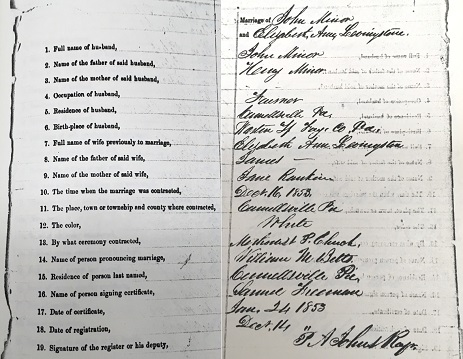 1. Full name of husband,
2. Name of the father of said husband,
3. Name of the mother of said husband,
4. Occupation of husband,
5. Residence of husband,
6. Birth-place of husband,
7. Full name of wife previously to marriage,
8. Name of the father of said wife,
9. Name of the mother of said wife,
10. The time when the marriage was contracted,
11. The place, town or township and county where contracted,
12. The color,
13. By what ceremony contracted,
14. Name of person pronouncing marriage,
15. Residence of person last named,
16. Name of person signing certificate,
17. Date of certificate,
18. Date of registration,
19. Signature of the register or his deputy,
Marriage of John Minor
and Elizabeth Ann Livingston.
John Minor
Henry Minor
Farmer
Connellsville Pa
Co. Pa
Elizabeth Ann Livingston
James —
Jane Rankin
Dect. 16, 1853
Connellsville Pa
White
Church
William
Connellsville Pa.
Samuel Freeman
Jan. 24 1853
Dect. 14